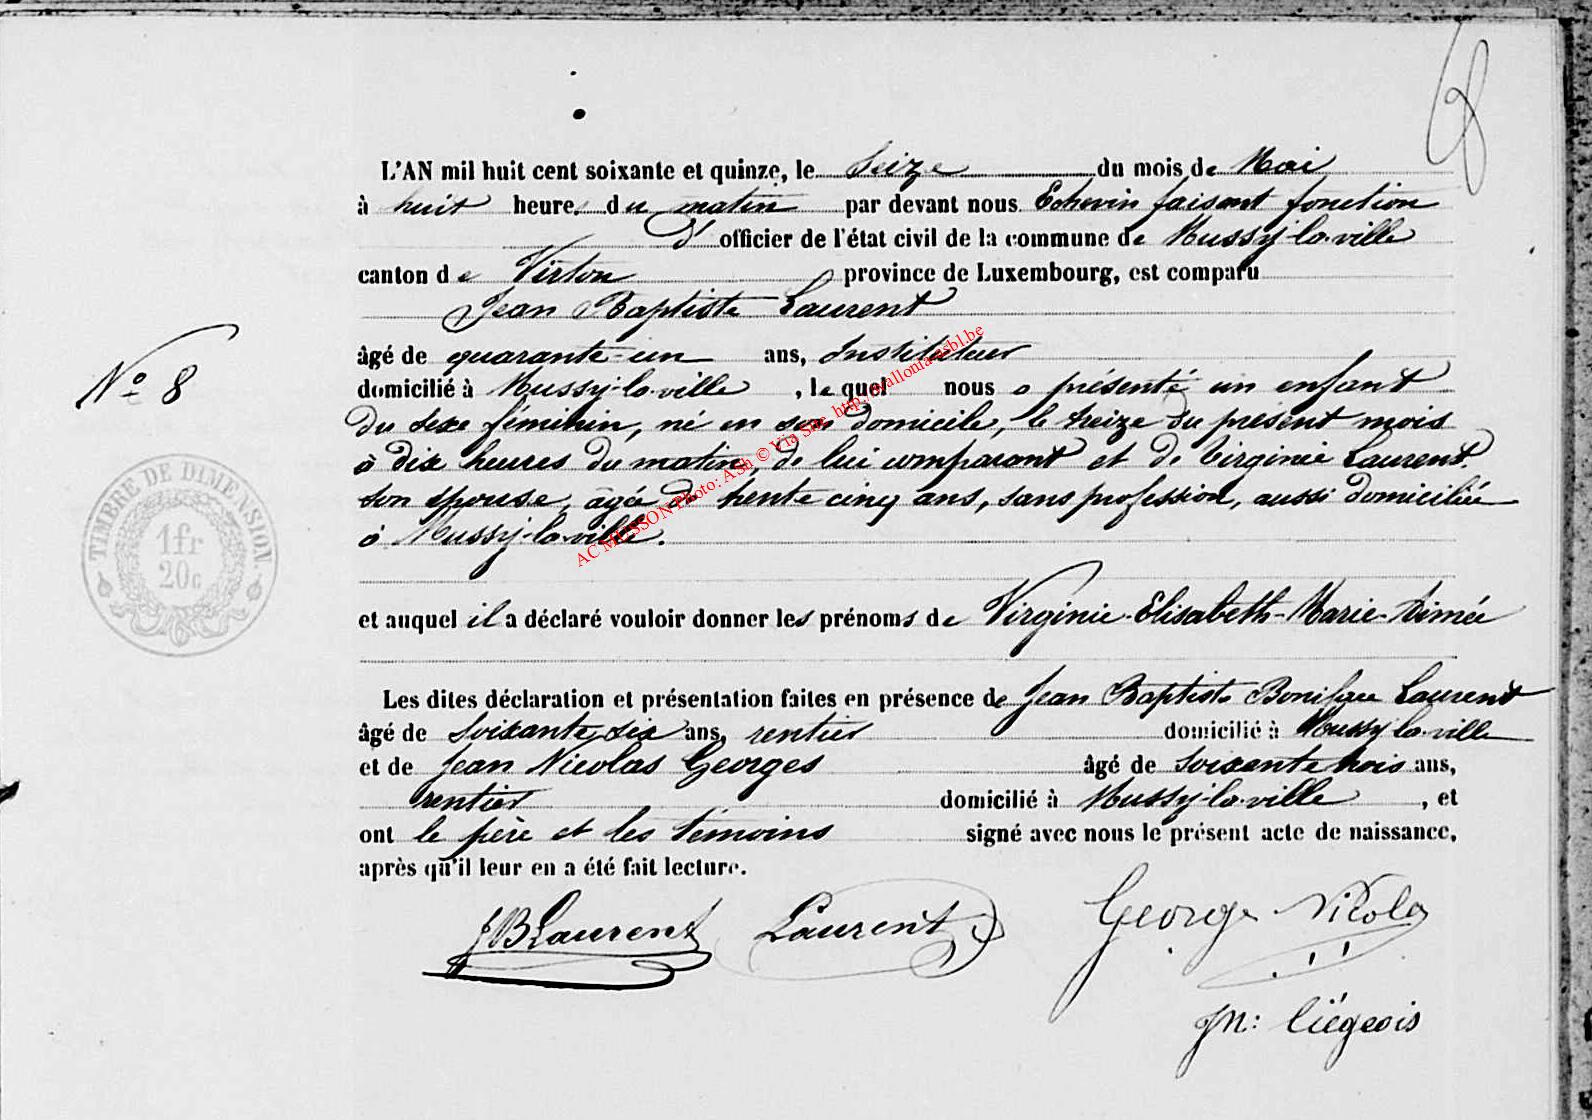 68
L'AN mil huit cent soixante et quinze, le Seize du mois de Mai
à huit heures du matin par devant nous Echevin faisant fonction
d' officier de l'état civil de la commune de Mussy-la-ville
canton de Virton province de Luxembourg, est comparu
Jean Baptiste Laurent
âgé de quarante-un ans, Instituteur
N° 8
domicilié à Mussy-la-ville, le quel nous a présenté un enfant
du sexe féminin, né en son domicile, le treize du présent mois
à dix heures du matin, de lui comparant et de Virginie Laurent
son épouse, agée de trente cinq ans, sans profession, aussi domiciliée
à Mussy-la-ville.
TIMBRE DE DIMENSION.
1fr
20c
AC MUSSON Photo: ASh © Via Site http://wallonia-asbl.be
et auquel il a déclaré vouloir donner les prénoms de Virginie-Elisabeth-Marie-Aimée
Les dites déclaration et présentation faites en présence de Jean Baptiste Boniface Laurent
âgé de soixante six ans, rentier domicilié à Mussy-la-ville
et de Jean Nicolas Georges âgé de soixante trois ans,
rentier domicilié à Mussy-la-ville, et
ont le père et les témoins signé avec nous le présent acte de naissance,
après qu'il leur en a été fait lecture.
JBLaurent Laurent George Nicolas
JN: Liégeois